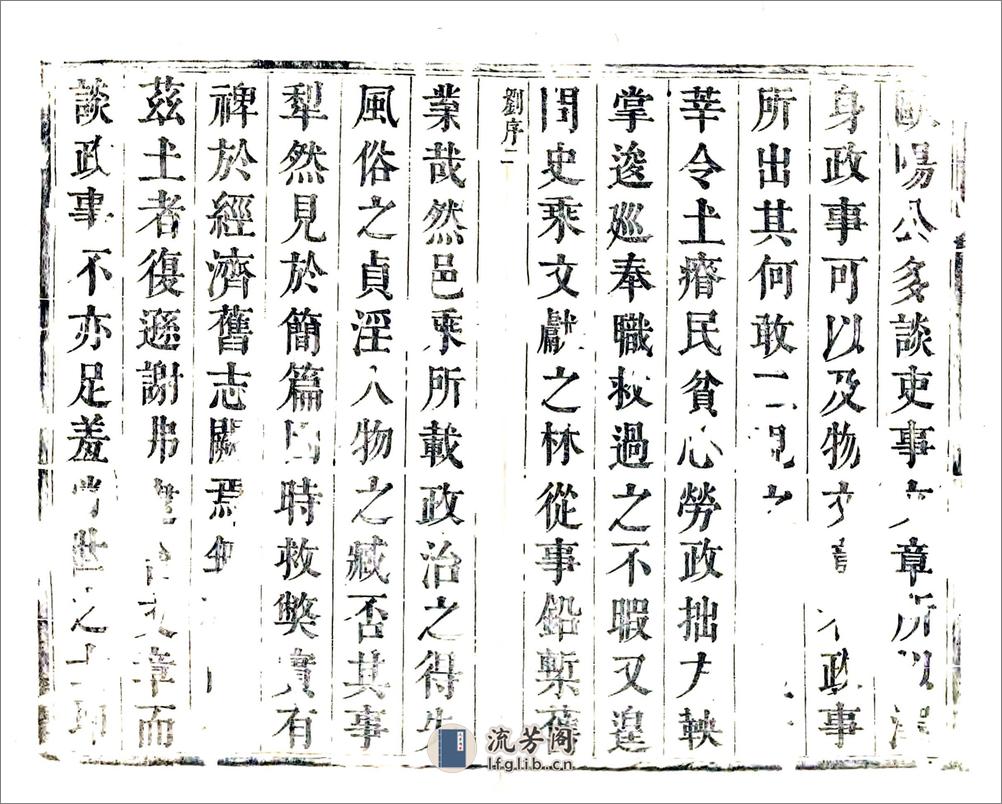 歐陽公多談吏事文章所以潤
身政事可以及物文章政事
所出其何敢二視之
莘令土瘠民貧心勞政拙才軼
掌逡巡奉職救過之不暇又遑
問史乘文獻之林從事鉛槧舊
劉序二
業哉然邑乘所載政治之得失
風俗之貞淫人物之臧否其事
犁然見於簡篇因時救獘實有
裨於經濟舊志闕焉
茲土者復遜謝弗文章而
談政事不亦足羞當世之士耶
流芳阁
lfglib.cn